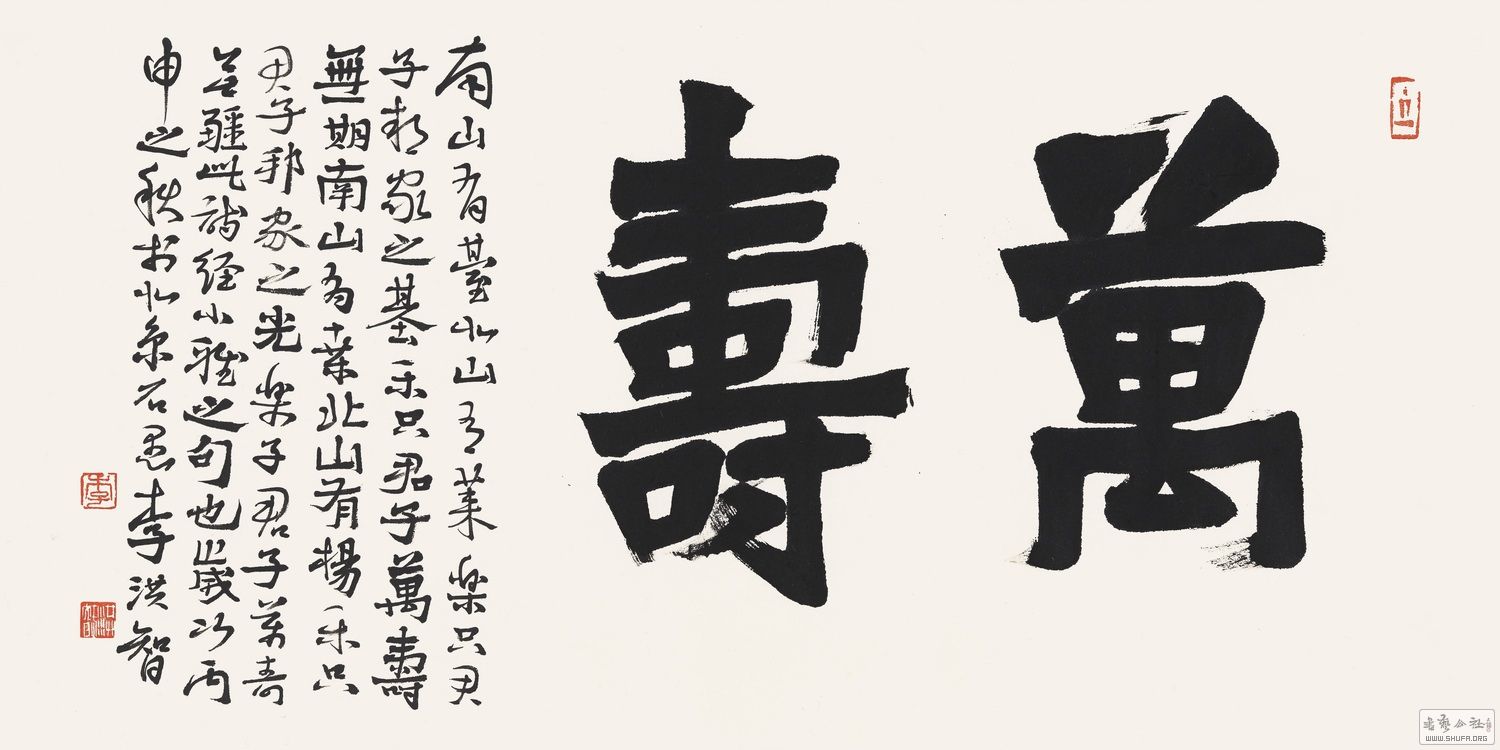 萬壽
南山有臺北山有萊樂只君
子邦家之基乐只君子萬壽
無期南山有桑北山有楊乐只
君子邦家之光樂子君子萬壽
無疆此詩經小雅之句也歲次丙
申之秋於北京石愚李洪智
李
書藝公社
WWW.SHUFA.ORG